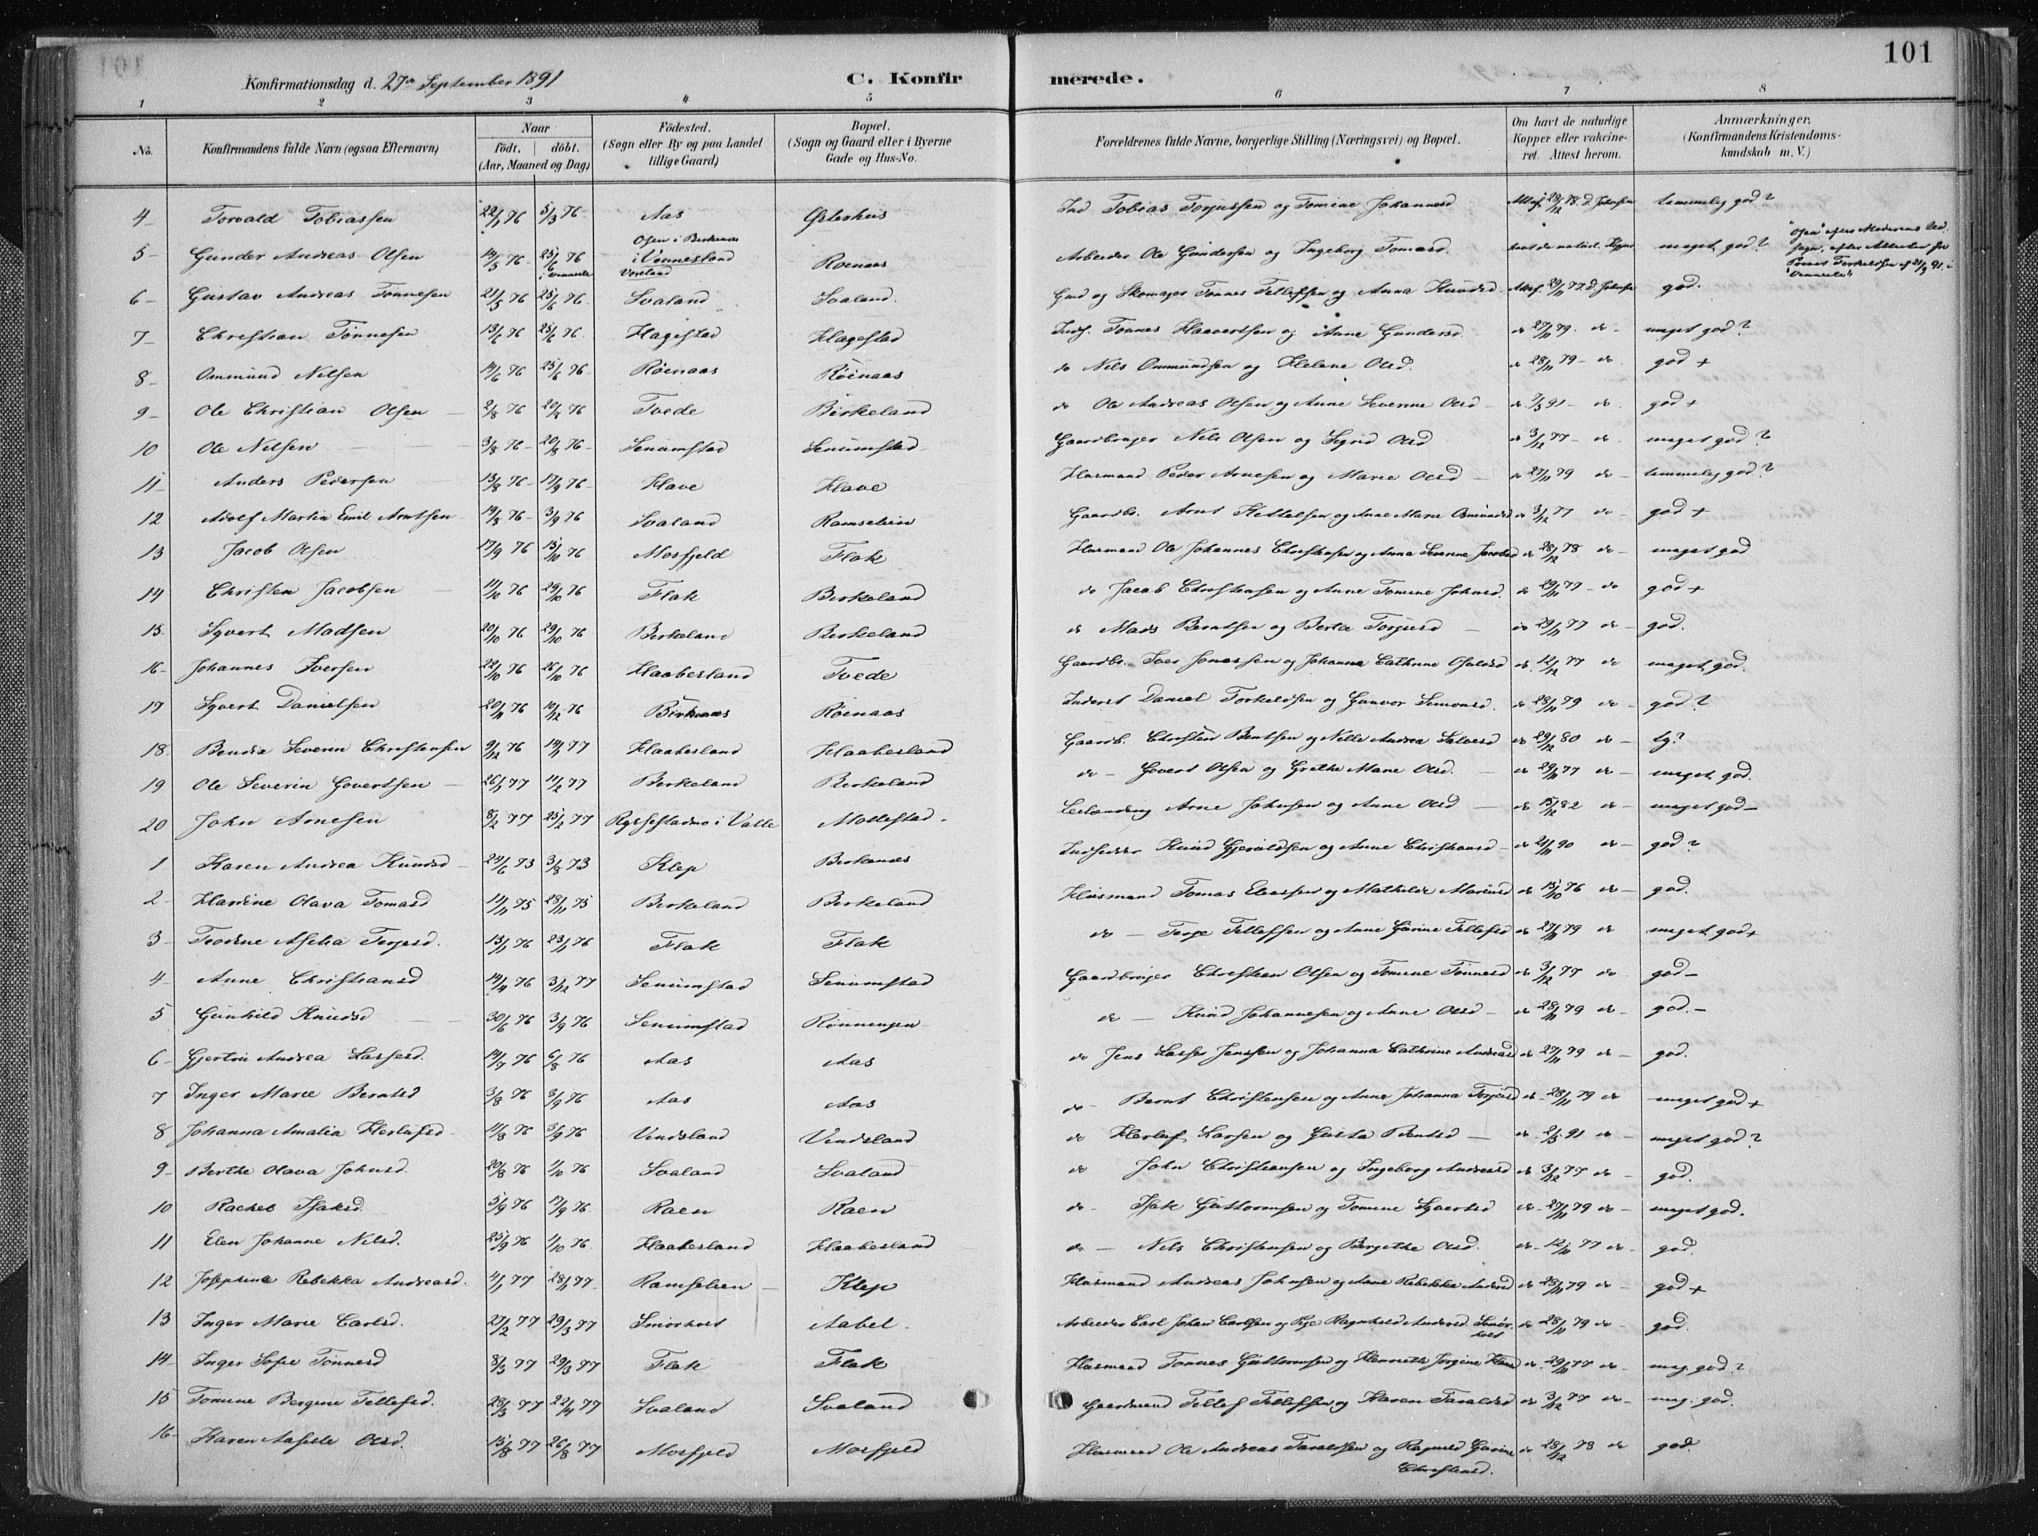 101
Konfirmationsdag d. 27de September 1891
C. Konfir merede.
1 2 3 4 5 6 7 8
No. Konfirmandens fulde Navn (ogsaa Efternavn) Naar født. døbt. (Aar, Maaned og Dag) Fødested. (Sogn eller By og paa Landet tillige Gaard) Bopæl. (Sogn og Gaard eller i Byerne Gade og Hus-No. Forældrenes fulde Navne, borgerlige Stilling (Næringsvei) og Bopæl. Om havt de naturlige Kopper eller vakcineret. Attest herom. Anmærkninger. (Konfirmandens Kristendomskundskab m. V.)
4 Torvald Tobiassen 22/1 76 5/3 76 Aas Østerhus Ind Tobias Torjussen og Tomine Johannesd Attest 29/12 78 d. Johnsen temmelig god?
5 Gunder Andreas Olsen 14/5 76 25/6 76 Osen i Birkenæs i Vennesland Roenaas Arbeider Ole Gundersen og Ingeborg Tomasd. meget god?
6 Gustav Andreas Tønnesen 21/5 76 25/6 76 Svaland Svaland Gmd og Skomager Tønnes Tellefsen og Anna Knudsd Attest 29/11 77 d. Johnsen god.
7 Christian Tønnesen 13/6 76 25/6 76 Hagestad Hagestad Inds. Tønnes Haavertsen og Anne Gundersd. do 27/11 79 do meget god?
8 Ommund Nilsen 14/6 76 25/6 76 Røenaas Røenaas do Nils Ommundsen og Helene Olsd. do 28/11 79 do god +
9 Ole Christian Olsen 2/8 76 20/8 76 Tvede Birkeland do Ole Andreas Olsen og Anne Severine Olsd do 7/3 91 do god +
10 Ole Nilsen 3/8 76 20/8 76 Senumstad Senumstad Gaardbruger Nils Olsen og Sigrid Olsd do 3/12 77 do meget god?
11 Anders Pedersen 13/8 76 17/9 76 Klave Klave Husmand Peder Arnesen og Marie Olsd do 27/11 79 do temmelig god?
12 Adolf Martin Emil Arntsen 19/8 76 3/9 76 Svaland Ramseleien Gaardbr. Arnt Kittelsen og Anne Marie Osmundsd do 3/12 77 do god +
13 Jacob Olsen 17/9 76 15/10 76 Mosfjeld Flak Husmand Ole Johannes Christiansen og Anna Severine Jacobsd do 28/12 78 do meget god
14 Christen Jacobsen 11/10 76 29/10 76 Flak Birkeland do Jacob Christensen og Anne Tomine Johnsd. do 29/11 77 do god +
15 Syvert Madsen 20/10 76 29/10 76 Birkeland Birkeland do Mads Berntsen og Berte Torjusd do 29/11 77 do god.
16 Johannes Iversen 22/10 76 26/10 76 Haabesland Tvede Gaardbr. Iver Jonassen og Johanna Cathrine do 12/12 77 do meget god.
17 Syvert Danielsen 20/11 76 10/12 76 Birkenæs Røenaas Inderst Daniel Torkeldsen og Gunvor Simonsd. do 28/11 79 do god?
18 Bendix Severin Christensen 9/12 76 14/1 77 Haabesland Haabesland Gaardb. Christen Bentsen og Nille Andrea Salvesd do 29/12 80 do tg?
19 Ole Severin Govertsen 26/1 77 11/2 77 Birkeland Birkeland do Govert Olsen og Grethe Marie Olsd. do 29/11 77 do meget god.
20 John Arnesen 8/2 77 25/2 77 Rysstadmo i Valle Mollestad Leilænding Arne Johnsen og Anne Olsd do 15/11 82 do meget god
1 Karen Andrea Knudsd 24/6 73 3/8 73 Klep Birkenæs Indsidder Knud Gjeruldsen og Anne Christiansd do 21/11 90 do god?
2 Hansine Olava Tomasd 14/11 75 28/11 75 Birkeland Birkeland Husmand Tomas Eliassen og Mathilde Mariusd do 15/10 76 do god.
3 Teodine Aselia Terjesd. 13/1 76 23/1 76 Flak Flak do Terje Tellefsen og Anne Gurine Tellefsd do 27/11 79 do meget god +
4 Anne Christiansd 14/4 76 3/12 77 Senumstad Senumstad Gaardbruger Christian Olsen og Tomine Tønnesd do 3/12 77 do god
5 Gunhild Knudsd 30/6 76 3/9 76 Senumstad Rønningen do Knud Johannesen og Anne Olsd do 28/11 79 do god.
6 Gjertrin Andrea Larsesd. 14/7 76 6/8 76 Aas Aas do Jens Lasse Jenssen og Johanna Cathrine Andreasd do 27/11 79 do god.
7 Inger Marie Berntsd 3/8 76 3/9 76 Aas Aas do Bernt Christensen og Anne Johanna Torjusd do 28/11 79 do meget god +
8 Johanna Amalia Herlufsd 11/8 76 3/9 76 Vindsland Vindsland do Herluf Larsen og Gusta Bentsd do 2/5 91 do meget god?
9 Berthe Olava Johnsd. 20/8 76 1/10 76 Svaland Svaland do John Christiansen og Ingeborg Andreasd do 3/12 77 do god.
10 Rachel Isaksd. 5/9 76 17/9 76 Raen Raen do Isak Guttormsen og Tomine Syvertsd do 27/11 79 do meget god.
11 Elen Johanne Nilsd. 25/9 76 1/10 76 Haabesland Haabesland do Nils Christensen og Bergethe Olsd. do 12/11 77 do god.
12 Josephine Rebekka Andreasd. 4/1 77 28/1 77 Ramseleien Klep Husmand Andreas Johnsen og Anne Rebekka Andersd do 28/11 79 do god +
13 Inger Marie Carlsd. 27/2 77 29/3 77 Smørholt Aabel Arbeider Carl Johan Carlsen og Pige Ragnhild Andersd. Smørholt do 28/11 79 do god.
14 Inger Sofie Tønnesd 8/3 77 29/3 77 Flak Flak Husmand Tønnes Guttormsen og Henriette Jørgine do 29/11 77 do meg. god?
15 Tomine Bergine Tellefsd. 28/3 77 22/4 77 Svaland Svaland Gaardmand Tellef Tellefsen og Karen Taraldsd do 3/12 77 do meg. god.
16 Karen Aaselle Olsd. 15/8 77 26/8 77 Mosfjeld Mosfjeld Husmand Ole Andreas Taraldsen og Ragnild Gurine Christensd. do 28/12 78 do god.